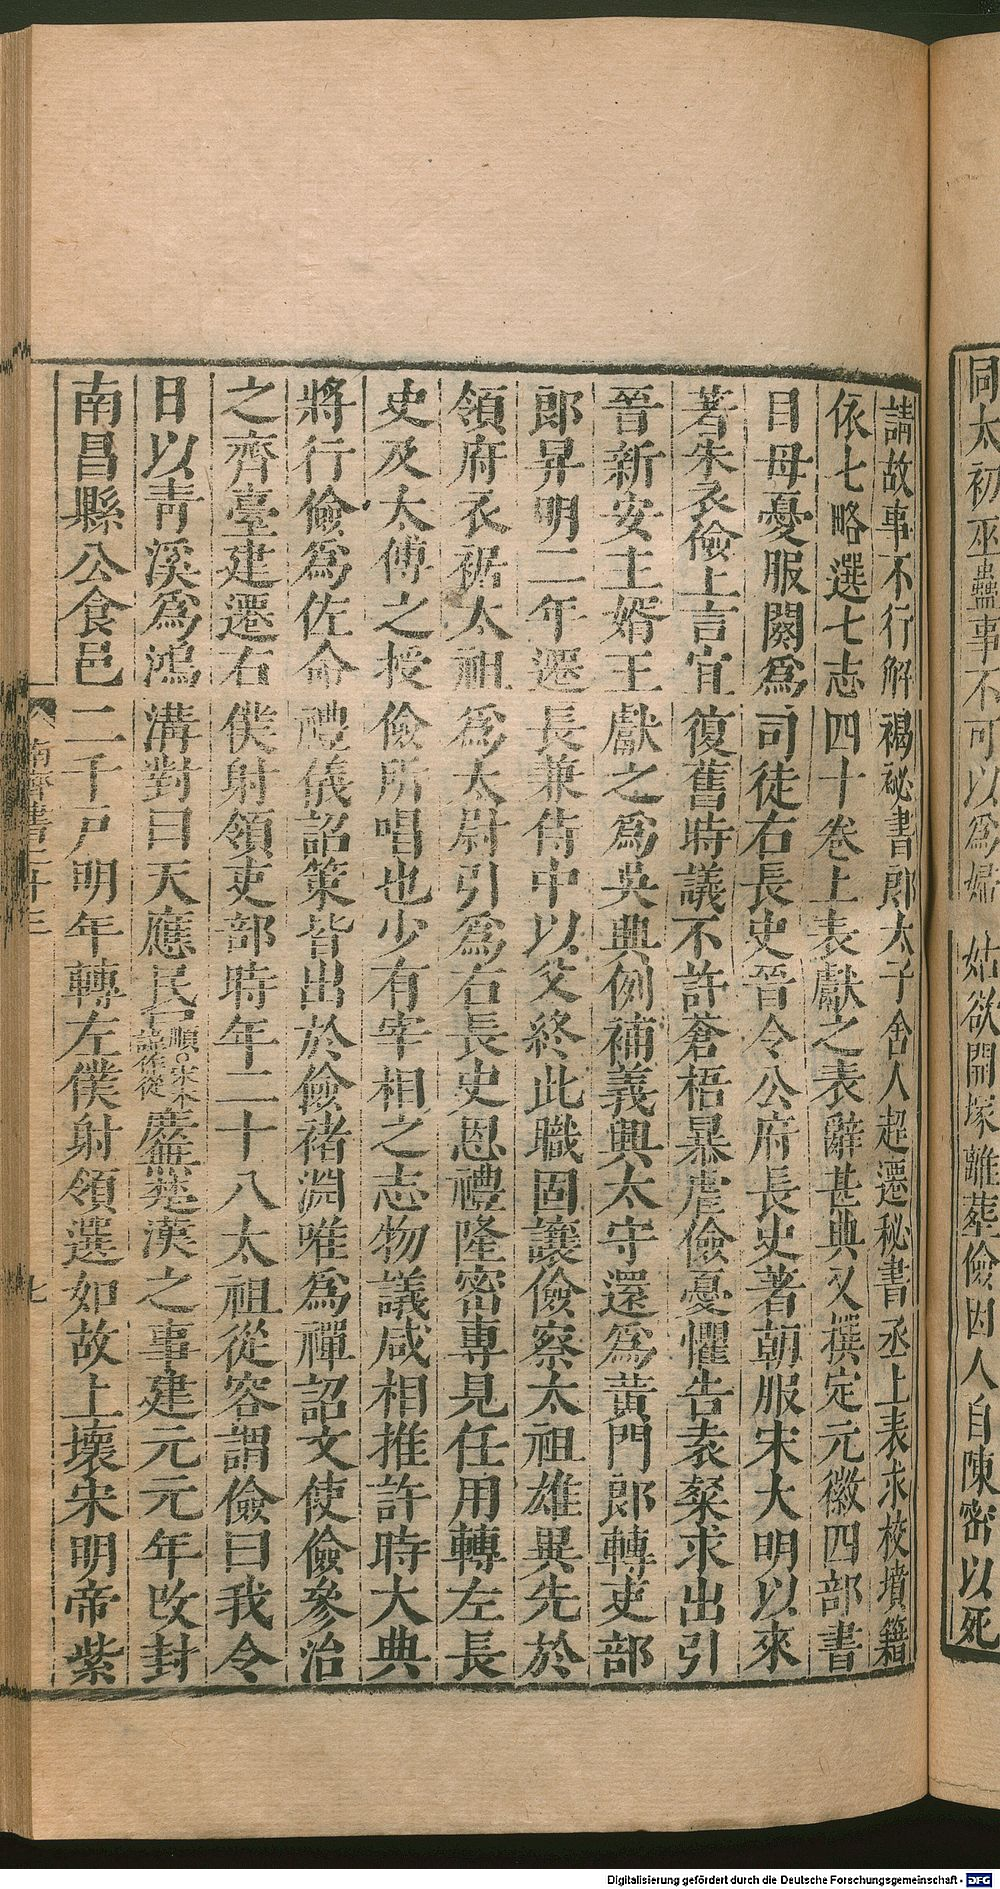 同太初巫蠱事不可以爲婦姑欲開塚離葬儉因人自陳密以死
請故事不行解褐祕書郎太子舍人超遷秘書丞上表求校墳籍
依七略選七志四十卷上表獻之表辭甚典又撰定元徽四部書
目母憂服闋爲司徒右長史晉令公府長史著朝服宋大明以來
著朱衣儉上言宜復舊時議不許蒼梧暴虐儉憂懼告袁粲求出引
晉新安主婿王獻之爲吳興例補義興太守還爲黃門郎轉吏部
郎昇明二年遷長兼侍中以父終此職固讓儉察太祖雄異先於
領府衣裾太祖爲太尉引爲右長史恩禮隆密專見任用轉左長
史及太傅之授儉所唱也少有宰相之志物議咸相推許時大典
將行儉爲佐命禮儀詔策皆出於儉褚淵唯爲禪詔文使儉參治
之齊臺建遷右僕射領吏部時年二十八太祖從容謂儉曰我今
日以靑溪爲鴻溝對曰天應民順○宋本諱作從庶無楚漢之事建元元年改封
南昌縣公食邑二千戶明年轉左僕射領選如故上壞宋明帝紫
南齊書二十三
七
Digitalisierung gefördert durch die Deutsche Forschungsgemeinschaft - DFG